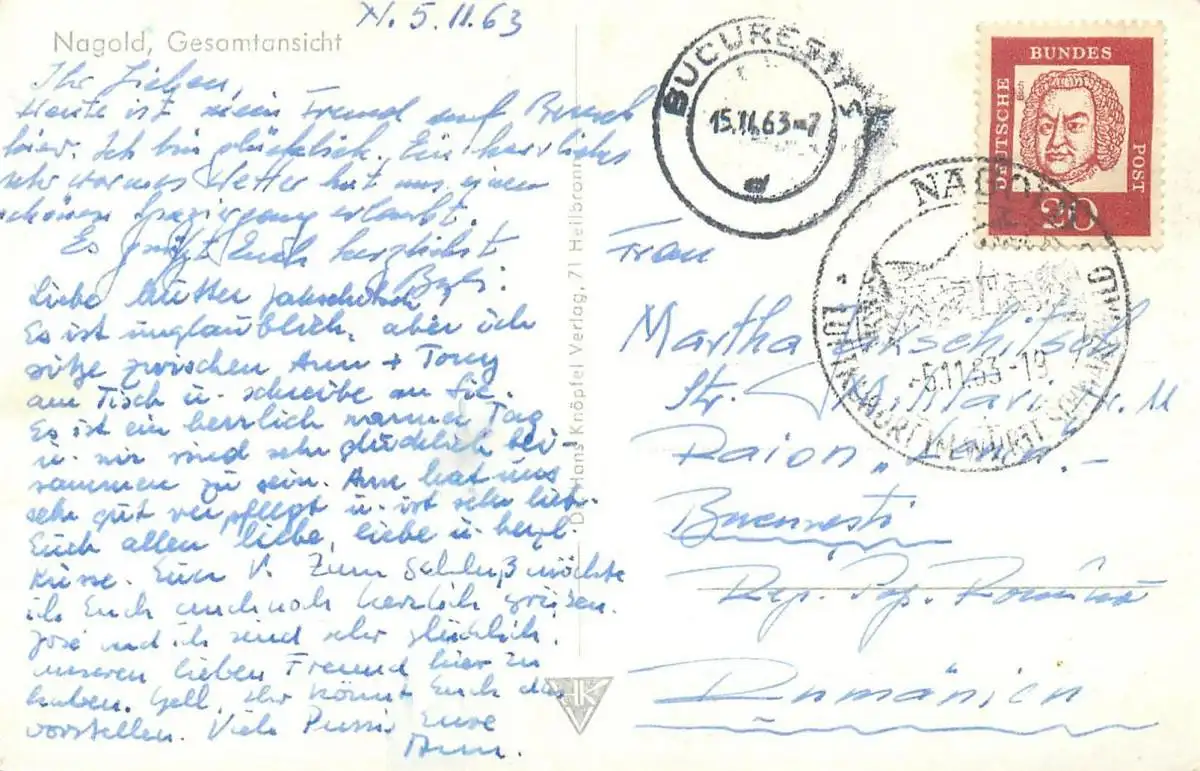 Nagold, Gesamtansicht
N. 5.11.63
Ihr Lieben,
Heute ist mein Freund auf Besuch
hier. Ich bin glücklich. Ein herrliches
sehr warmes Wetter hat uns einen
schönen erlaubt.
Es grüßt Euch herzlichst
Liebe Mutter Jakschitsch,
Es ist unglaublich, aber ich
sitze zwischen Ann + Tony
am Tisch u. schreibe an Sie.
Es ist ein herrlich warmer Tag
u. wir sind sehr glücklich bei-
sammen zu sein. Ann hat uns
sehr gut verpflegt u. ist sehr lieb.
Euch allen liebe, liebe u. herzl.
Küsse. Eure V. Zum Schluß möchte
ich Euch auch noch herzlich grüßen.
José und ich sind sehr glücklich,
unseren lieben Freund hier zu
haben. Gell, Ihr könnt Euch das
vorstellen. Viele Pussi Eure
Ann.
Hans Knöpfel Verlag, 71 Heilbronn
HK
BUCURESTI
15.11.63-7
DEUTSCHE BUNDES POST
20
NAGOLD
-5.11.63-19
LUFTKURORT
Frau
Martha Jakschitsch
Str. Nr. 11
Raion „Lenin“
Bucuresti
Rep. Pop. Română
Rumänien